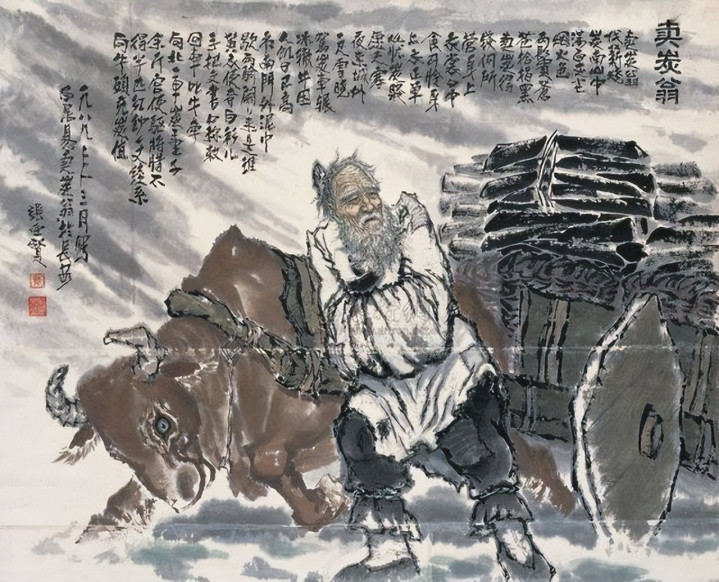 卖炭翁
卖炭翁
伐薪烧
炭南山中
满面尘灰
烟火色
两鬓苍
苍十指黑
卖炭得
钱何所
营身上
衣裳口中
食可怜身
上衣正单
心忧炭贱
愿天寒
夜来城外
一尺雪晓
驾炭车辗
冰辙牛困
人饥日已高
市南门外泥中
歇翩翩两骑来是谁
黄衣使者白衫儿
手把文书口称敕
回车叱牛牵
向北一车炭重千
余斤官使驱将惜不
得半匹红纱一丈绫系
向牛头充炭值
一九八九年十二月
白居易卖炭翁於长安